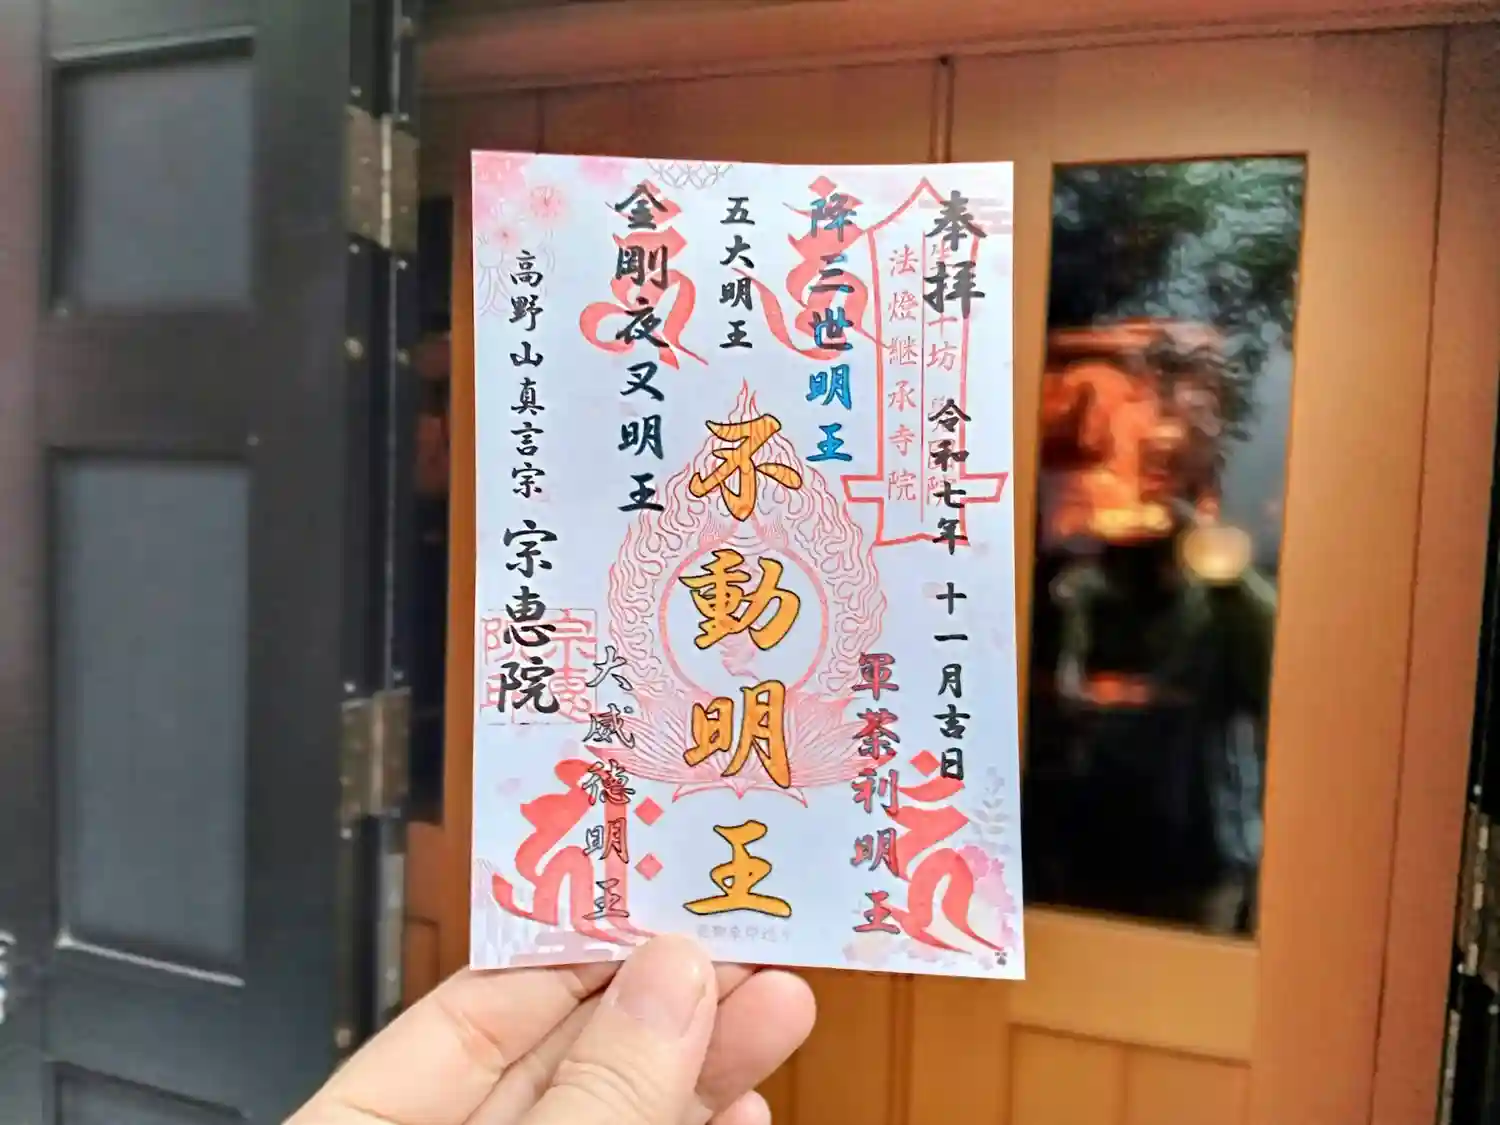 奉拝
令和七年 十一月吉日
法燈継承寺院
降三世明王
軍荼利明王
五大明王
不動明王
金剛夜叉明王
大威徳明王
高野山真言宗 宗恵院